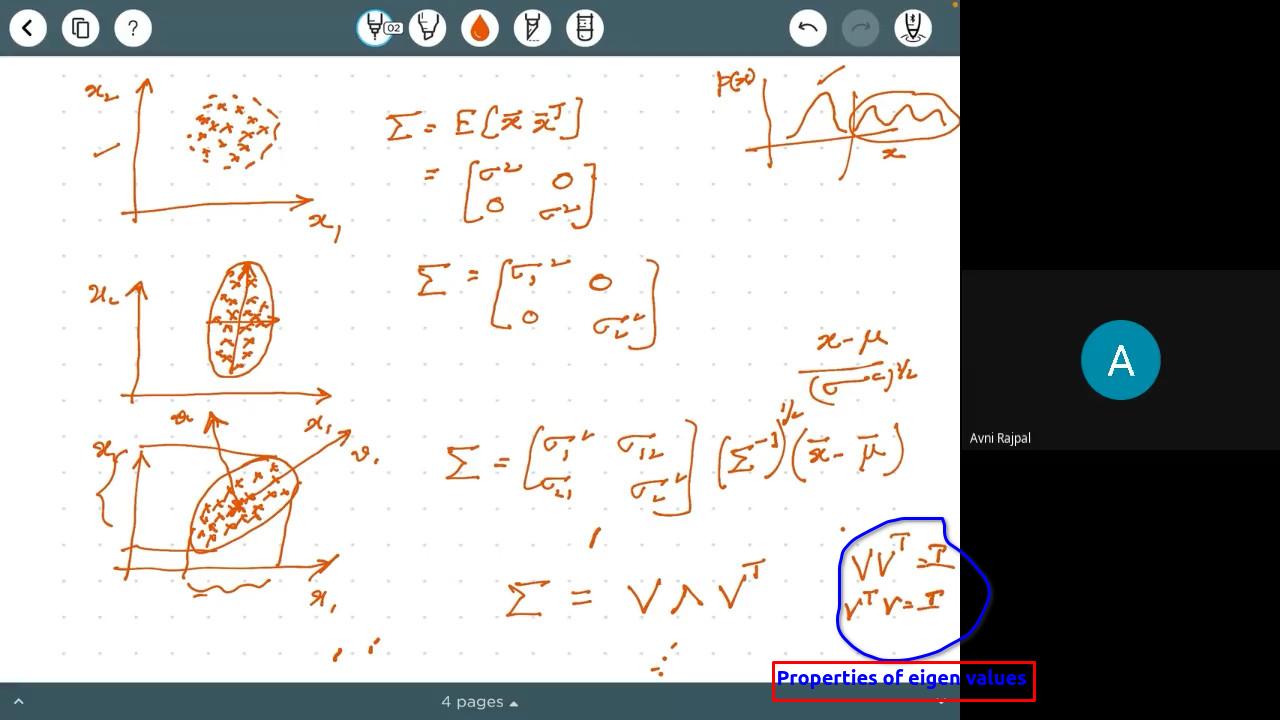 02
x₂
x₁
Σ = E[x̄ x̄ᵀ]
= [σ² 0
0 σ²]
p(x)
x
x₂
x₁
Σ = [σ₁² 0
0 σ₂²]
x-μ
x₂
x₁
v₁
Σ = [σ₁² σ₁₂
σ₂₁ σ₂²] (Σ⁻¹)^1/2 (x̄ - μ̄)
Σ = V Λ Vᵀ
VVᵀ = I
VᵀV = I
Properties of eigen values
4 pages
A
Avni Rajpal